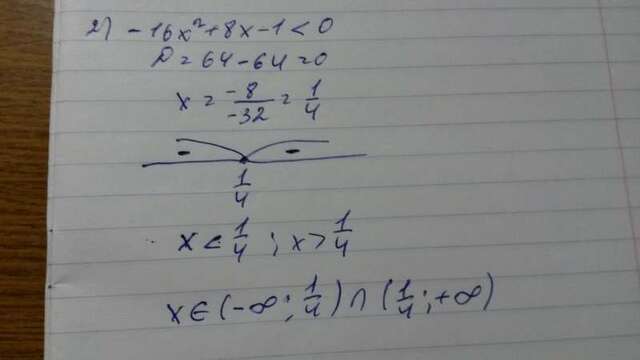 2) -16x²+8x-1<0
D=64-64=0
x = -8/-32 = 1/4
- -
1/4
x < 1/4 ; x > 1/4
x ∈ (-∞; 1/4) ∩ (1/4; +∞)